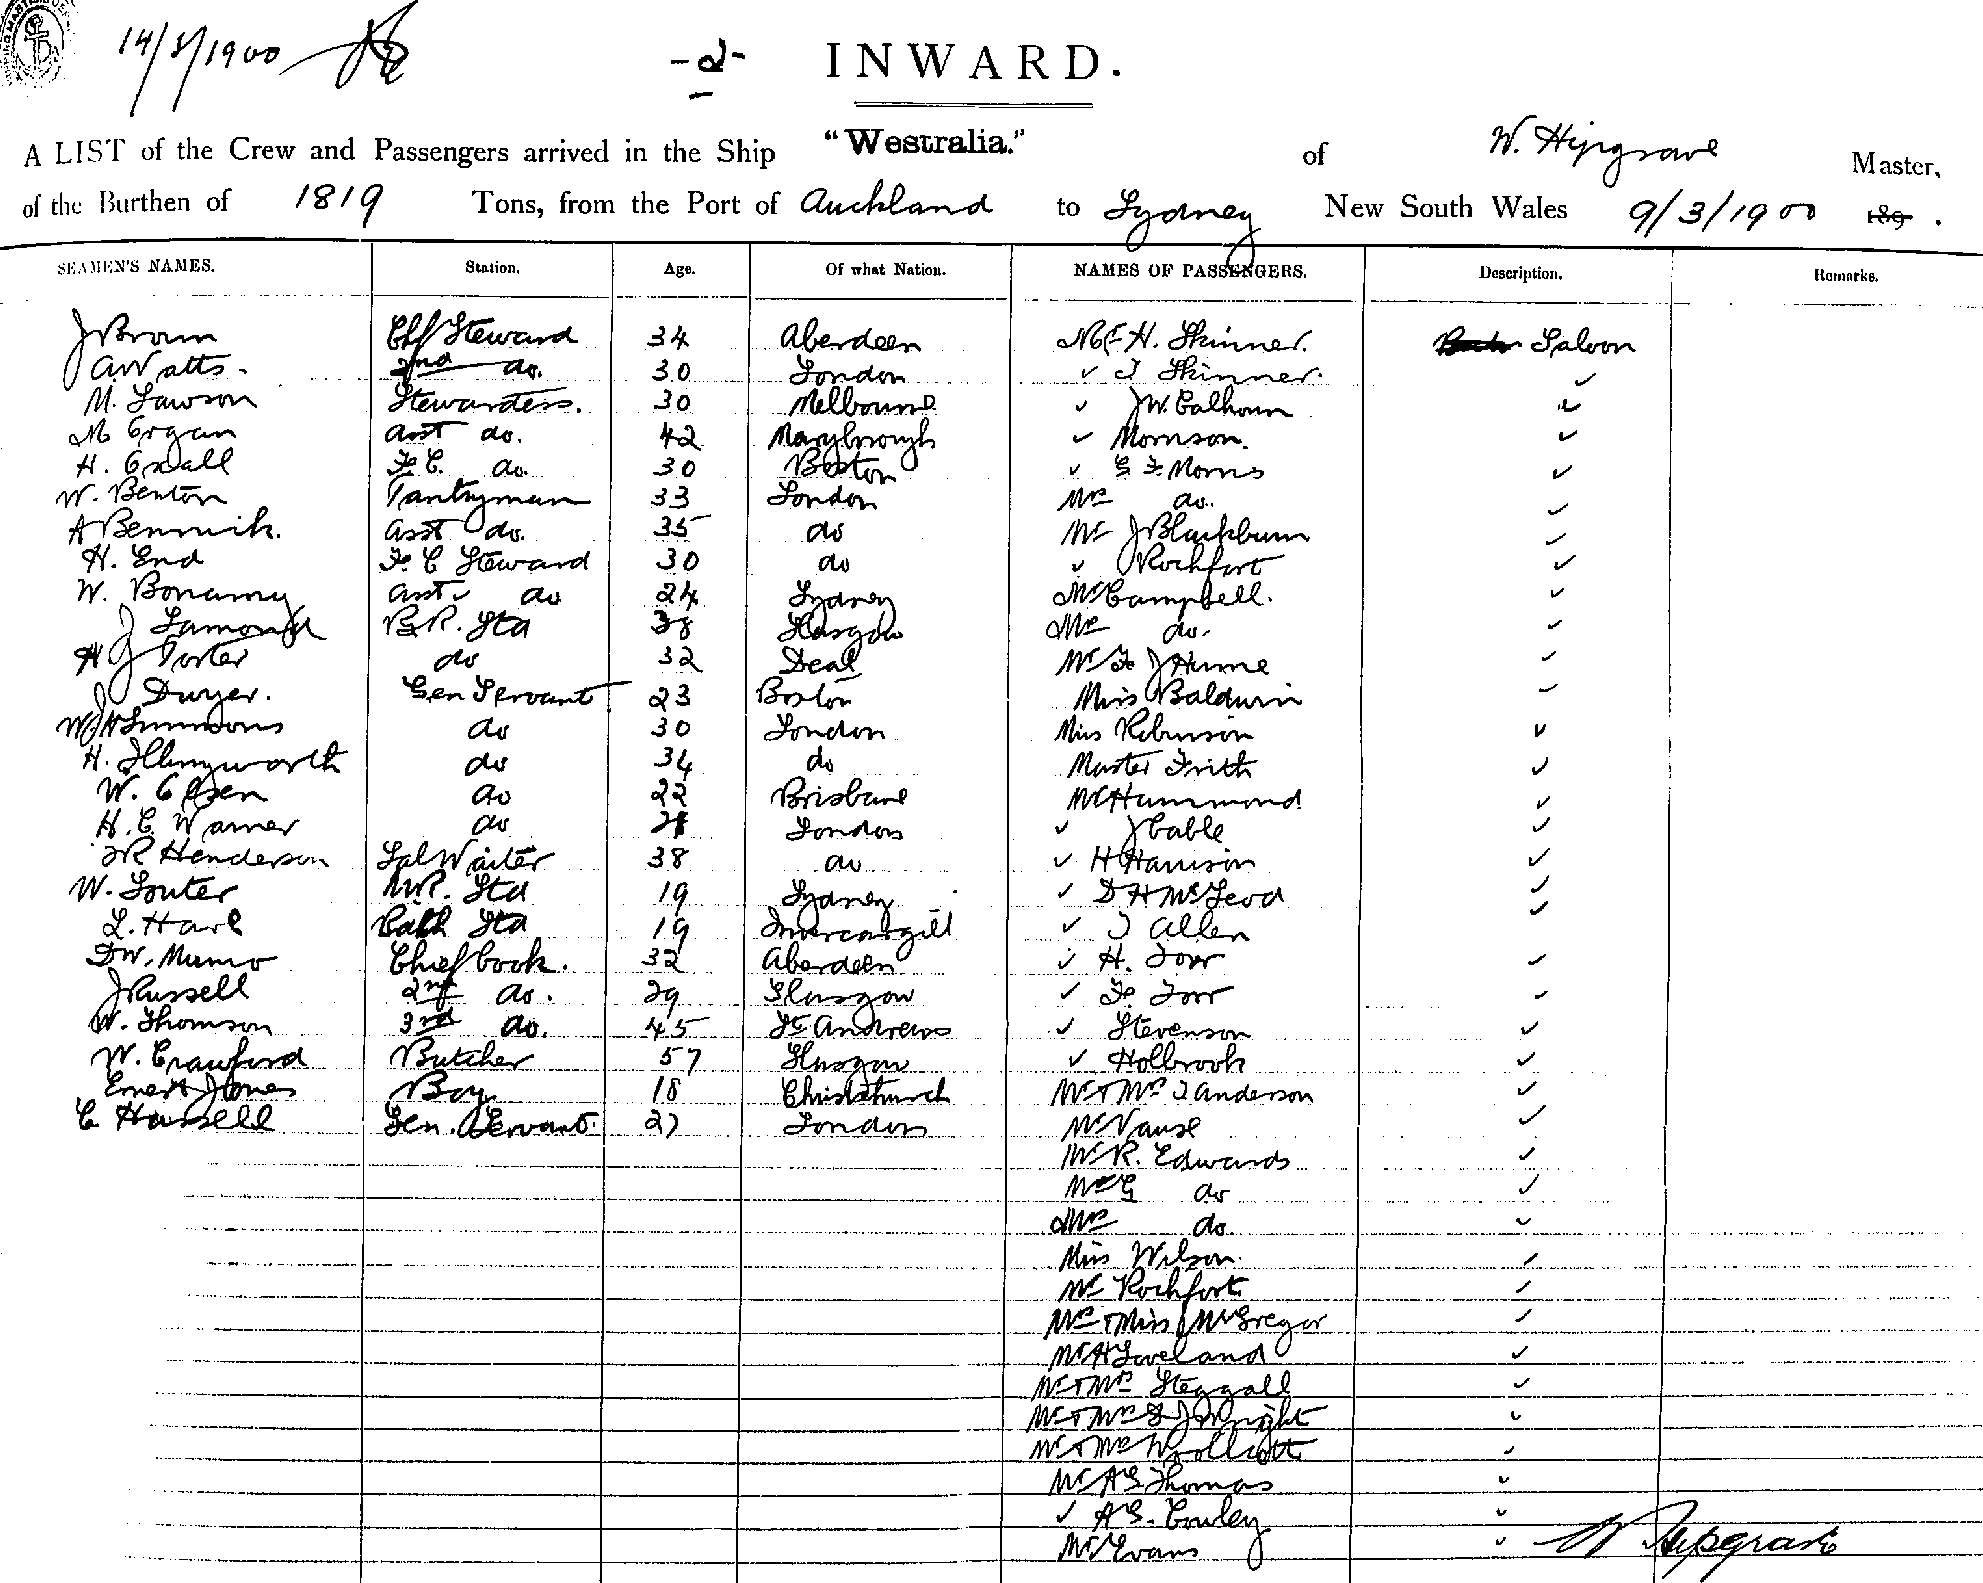 14/3/1900
-2-
INWARD.
A LIST of the Crew and Passengers arrived in the Ship "Westralia." of W. Hipgrave Master,
of the Burthen of 1819 Tons, from the Port of Auckland to Sydney New South Wales 9/3/1900 189 .
SEAMEN'S NAMES. Station. Age. Of what Nation. NAMES OF PASSENGERS. Description. Remarks.
J Brown Chf Steward 34 Aberdeen Mr E H. Skinner. Saloon
A Watts. 2nd do. 30 London ✓ J Skinner. ✓
M. Lawson Stewardess. 30 Melbourne ✓ J W. Calhoun ✓
M Organ Asst do. 42 Maryborough ✓ Morrison. ✓
H. Oxall F. C. do. 30 Boston ✓ G F Morris ✓
W. Benton Pantryman 33 London Mrs do. ✓
A Bennnik. Asst do. 35 do Mr J Blackburn ✓
H. End F. C Steward 30 do ✓ Rochfort ✓
W. Bonamy Asst do 24 Sydney Mr Campbell. ✓
J Lamond B.R. Std 38 Glasgow Mrs do. ✓
H J Porter do 32 Deal Mr F J Hume ✓
J Dwyer. Gen Servant 23 Boston Miss Baldwin ✓
W J H Simmons do 30 London Miss Robinson ✓
H. Illingworth do 34 do Master Frith ✓
W. Olsen do 22 Brisbane Mr Hammond ✓
H. C. Warner do 28 London ✓ J Cable ✓
J R Henderson Sal Waiter 38 do ✓ H Harrison ✓
W. Souter M.R. Std 19 Sydney ✓ D H McLeod ✓
L. Harl Bath Std 19 Invercargill ✓ J Allen ✓
D W. Munro Chief Cook. 32 Aberdeen ✓ H. Torr ✓
J Russell 2nd do. 29 Glasgow ✓ F. Torr ✓
W. Thomson 3rd do. 45 St Andrews ✓ Stevenson ✓
W. Crawford Butcher 57 Glasgow ✓ Holbrook ✓
Ernest Jones Boy 18 Christchurch Mr & Mrs J Anderson ✓
C Hassell Gen. Servant. 27 London Mr Vause ✓
Mr R. Edwards ✓
Mr G do ✓
Mrs do. ✓
Miss Wilson. ✓
Mr Rochfort ✓
Mrs & Miss McGregor ✓
Mr H Loveland ✓
Mr & Mrs Steggall ✓
Mr & Mrs F J Wright ✓
Mr & Mrs Woollcott ✓
Mr A G Thomas ✓
✓ A G. Cowley ✓
Mr Evans ✓ W Hipgrave